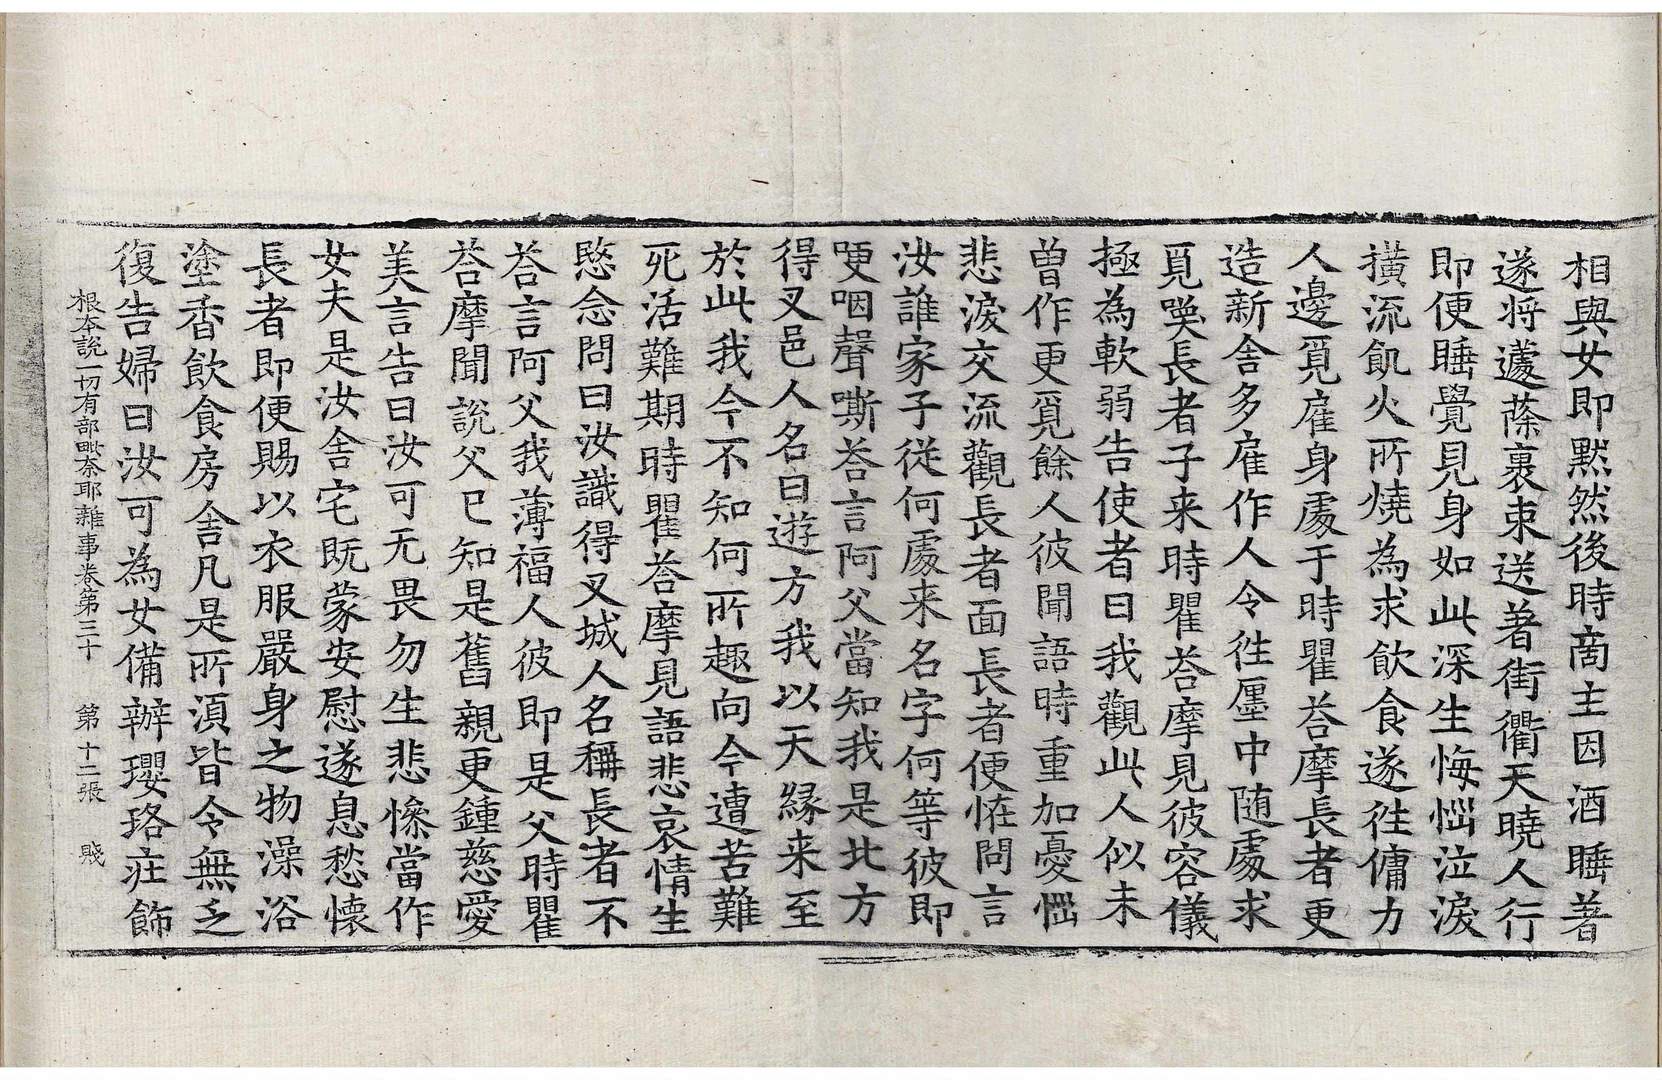 相與女即黙然後時啇主因酒睡著
遂將蘧蒢裹束送著街衢天曉人行
即便睡覺見身如此深生悔惱泣淚
撗流飢火所燒為求飲食遂徃傭力
人邊覓雇身處于時瞿荅摩長者更
造新舍多雇作人令徃㕓中随處求
覓喚長者子来時瞿荅摩見彼容儀
極為軟弱告使者曰我觀此人似未
曽作更覓餘人彼聞語時重加憂惱
悲淚交流觀長者面長者便恠問言
汝誰家子從何處来名字何等彼即
哽咽聲嘶荅言阿父當知我是北方
得叉邑人名曰遊方我以天縁来至
於此我今不知何所趣向今遭苦難
死活難期時瞿荅摩見語悲哀情生
愍念問曰汝識得叉城人名稱長者不
荅言阿父我薄福人彼即是父時瞿
荅摩聞說父已知是舊親更鍾慈愛
美言告曰汝可无畏勿生悲慘當作
女夫是汝舍宅既蒙安慰遂息愁懷
長者即便賜以衣服嚴身之物澡浴
塗香飲食房舍凡是所湏皆令無乏
復告婦曰汝可為女備辦瓔珞㽵飾
根夲說一切有部毗奈耶雜事卷第三十 第十二張 賤